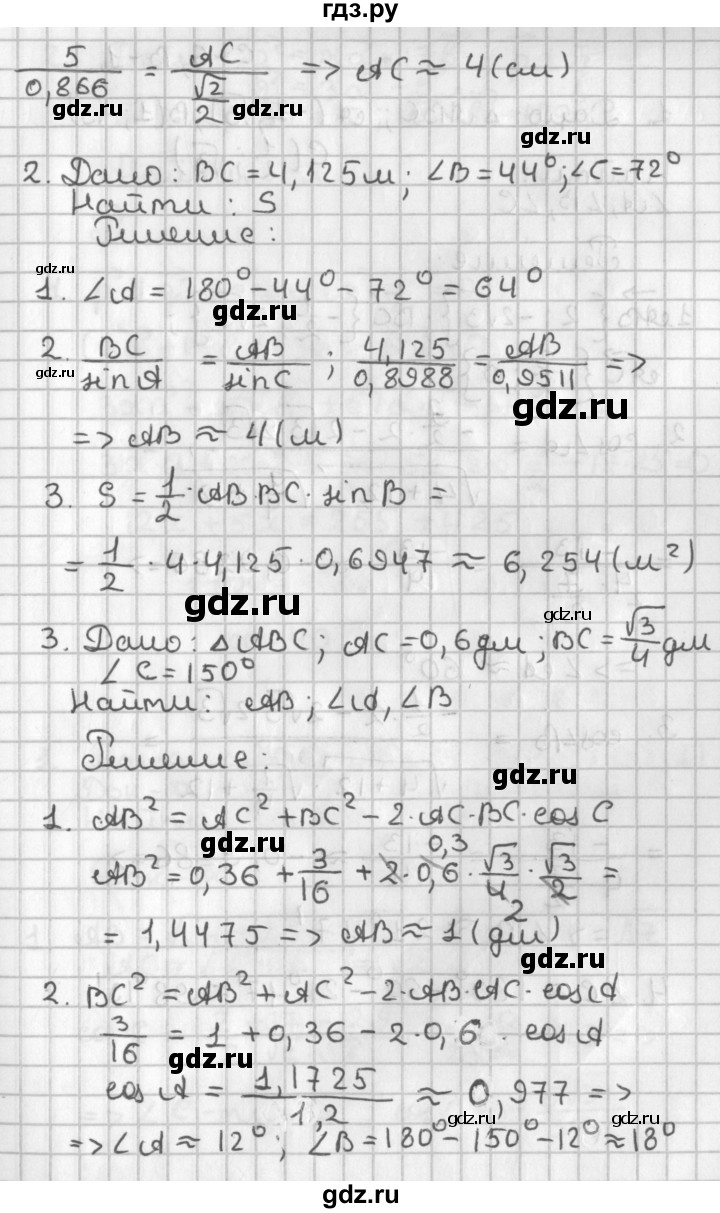 гдз.ру
5/0,866 = AC/(√2/2) => AC ≈ 4(см)
gdz.ru gdz.ru
gdz.ru
2. Дано: BC = 4,125м; ∠B = 44°; ∠C = 72°
Найти: S
Решение:
gdz.ru
1. ∠A = 180° - 44° - 72° = 64°
gdz.ru
2. BC/sin A = AB/sin C ; 4,125/0,8988 = AB/0,9511 =>
gdz.ru gdz.ru
=> AB ≈ 4(м)
3. S = 1/2 · AB · BC · sin B =
= 1/2 · 4 · 4,125 · 0,6947 ≈ 6,254(м²)
gdz.ru gdz.ru
3. Дано: △ABC; AC = 0,6дм; BC = √3/4 дм
∠C = 150°
Найти: AB; ∠A, ∠B
Решение:
gdz.ru
1. AB² = AC² + BC² - 2 · AC · BC · cos C
gdz.ru
0,3
AB² = 0,36 + 3/16 + 2 · 0,6 · √3/4 · √3/2 =
2
= 1,4475 => AB ≈ 1(дм)
gdz.ru
2. BC² = AB² + AC² - 2 · AB · AC · cos A
3/16 = 1 + 0,36 - 2 · 0,6 · cos A
gdz.ru
cos A = 1,1725/1,2 ≈ 0,977 =>
gdz.ru gdz.ru
=> ∠A ≈ 12°; ∠B = 180° - 150° - 12° ≈ 18°
gdz.ru